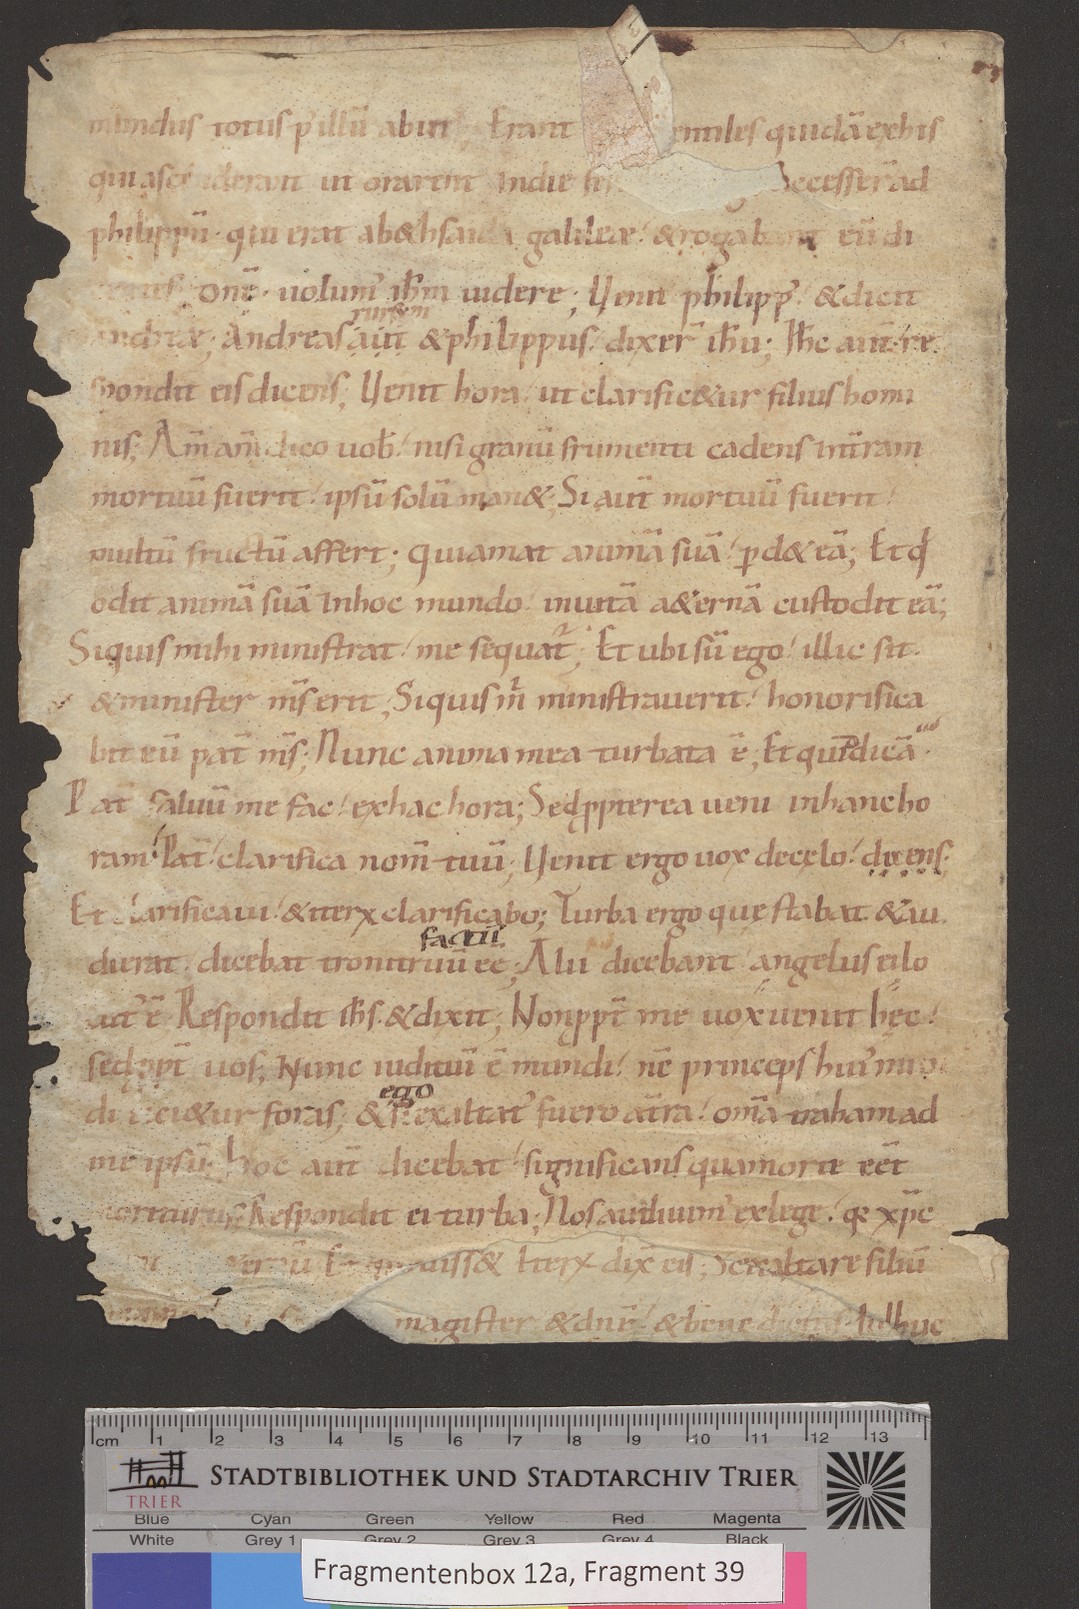 mundus totus p illū abiit Erant gentiles quidā exhis
qui ascenderant ut orarent Indie fes accesserad
philippū· qui erat ab&hsaida galileæ· &rogabant eū di
centes· Dnē· uolum' ihm uidere; Uenit philipp' &dicit
rursum
andriæ; Andreas aut̄ &philippus dixer̄ ihu; Ihc aut̄ re
spondit eis dicens; Uenit hora ut clarific&ur filius homi
nis; Am̄ am̄ dico uob̄ nisi granū frumenti cadens Int̄ram
mortuū fuerit ipsū solū man&; Si aut̄ mortuū fuerit
multū fructū affert; Qui amat animā suā pd& eā; Et q̄
odit animā suā Inhoc mundo inuitā a&ernā custodit eā;
Siquis mihi ministrat me sequat̄; Et ubi sū ego illic sit
&minister m̄s erit; Siquis m̄ ministrauerit honorifica
bit eū pat̄ m̄s; Nunc anima mea turbata ē; Et quid dicā
Pat̄ saluū me fac exhac hora; Sed ppterea ueni inhanc ho
ram Pat̄ clarifica nom̄ tuū; Uenit ergo uox decelo dicens·
Et clarificaui &iterx clarificabo; Turba ergo quę stabat &au
factū
dierat dicebat tronitruū eē; Alii dicebant angelus ei lo
cut' ē Respondit ihs &dixit; Non ppt̄ me uox uenit hęc
sed ppt̄ uos; Nunc iudiciū ē mundi nc̄ princeps hui' mun
ego
di eici&ur foras; & si exaltat' fuero at̄ra om̄a traham ad
me ipsū· hoc aut̄ dicebat significans qua morte eēt
moriturus; Respondit ei turba; Nos audiuim' exlege· q xp̄c
man& Inæternū iss& Iterx dix̄ eis; exaltare filiū
magister &dn̄e &bene dicitis
STADTBIBLIOTHEK UND STADTARCHIV TRIER
cm 1 2 3 4 5 6 7 8 9 10 11 12 13
TRIER
Blue Cyan Green Yellow Red Magenta
White Grey 1 Grey 2 Grey 3 Grey 4 Black
Fragmentenbox 12a, Fragment 39